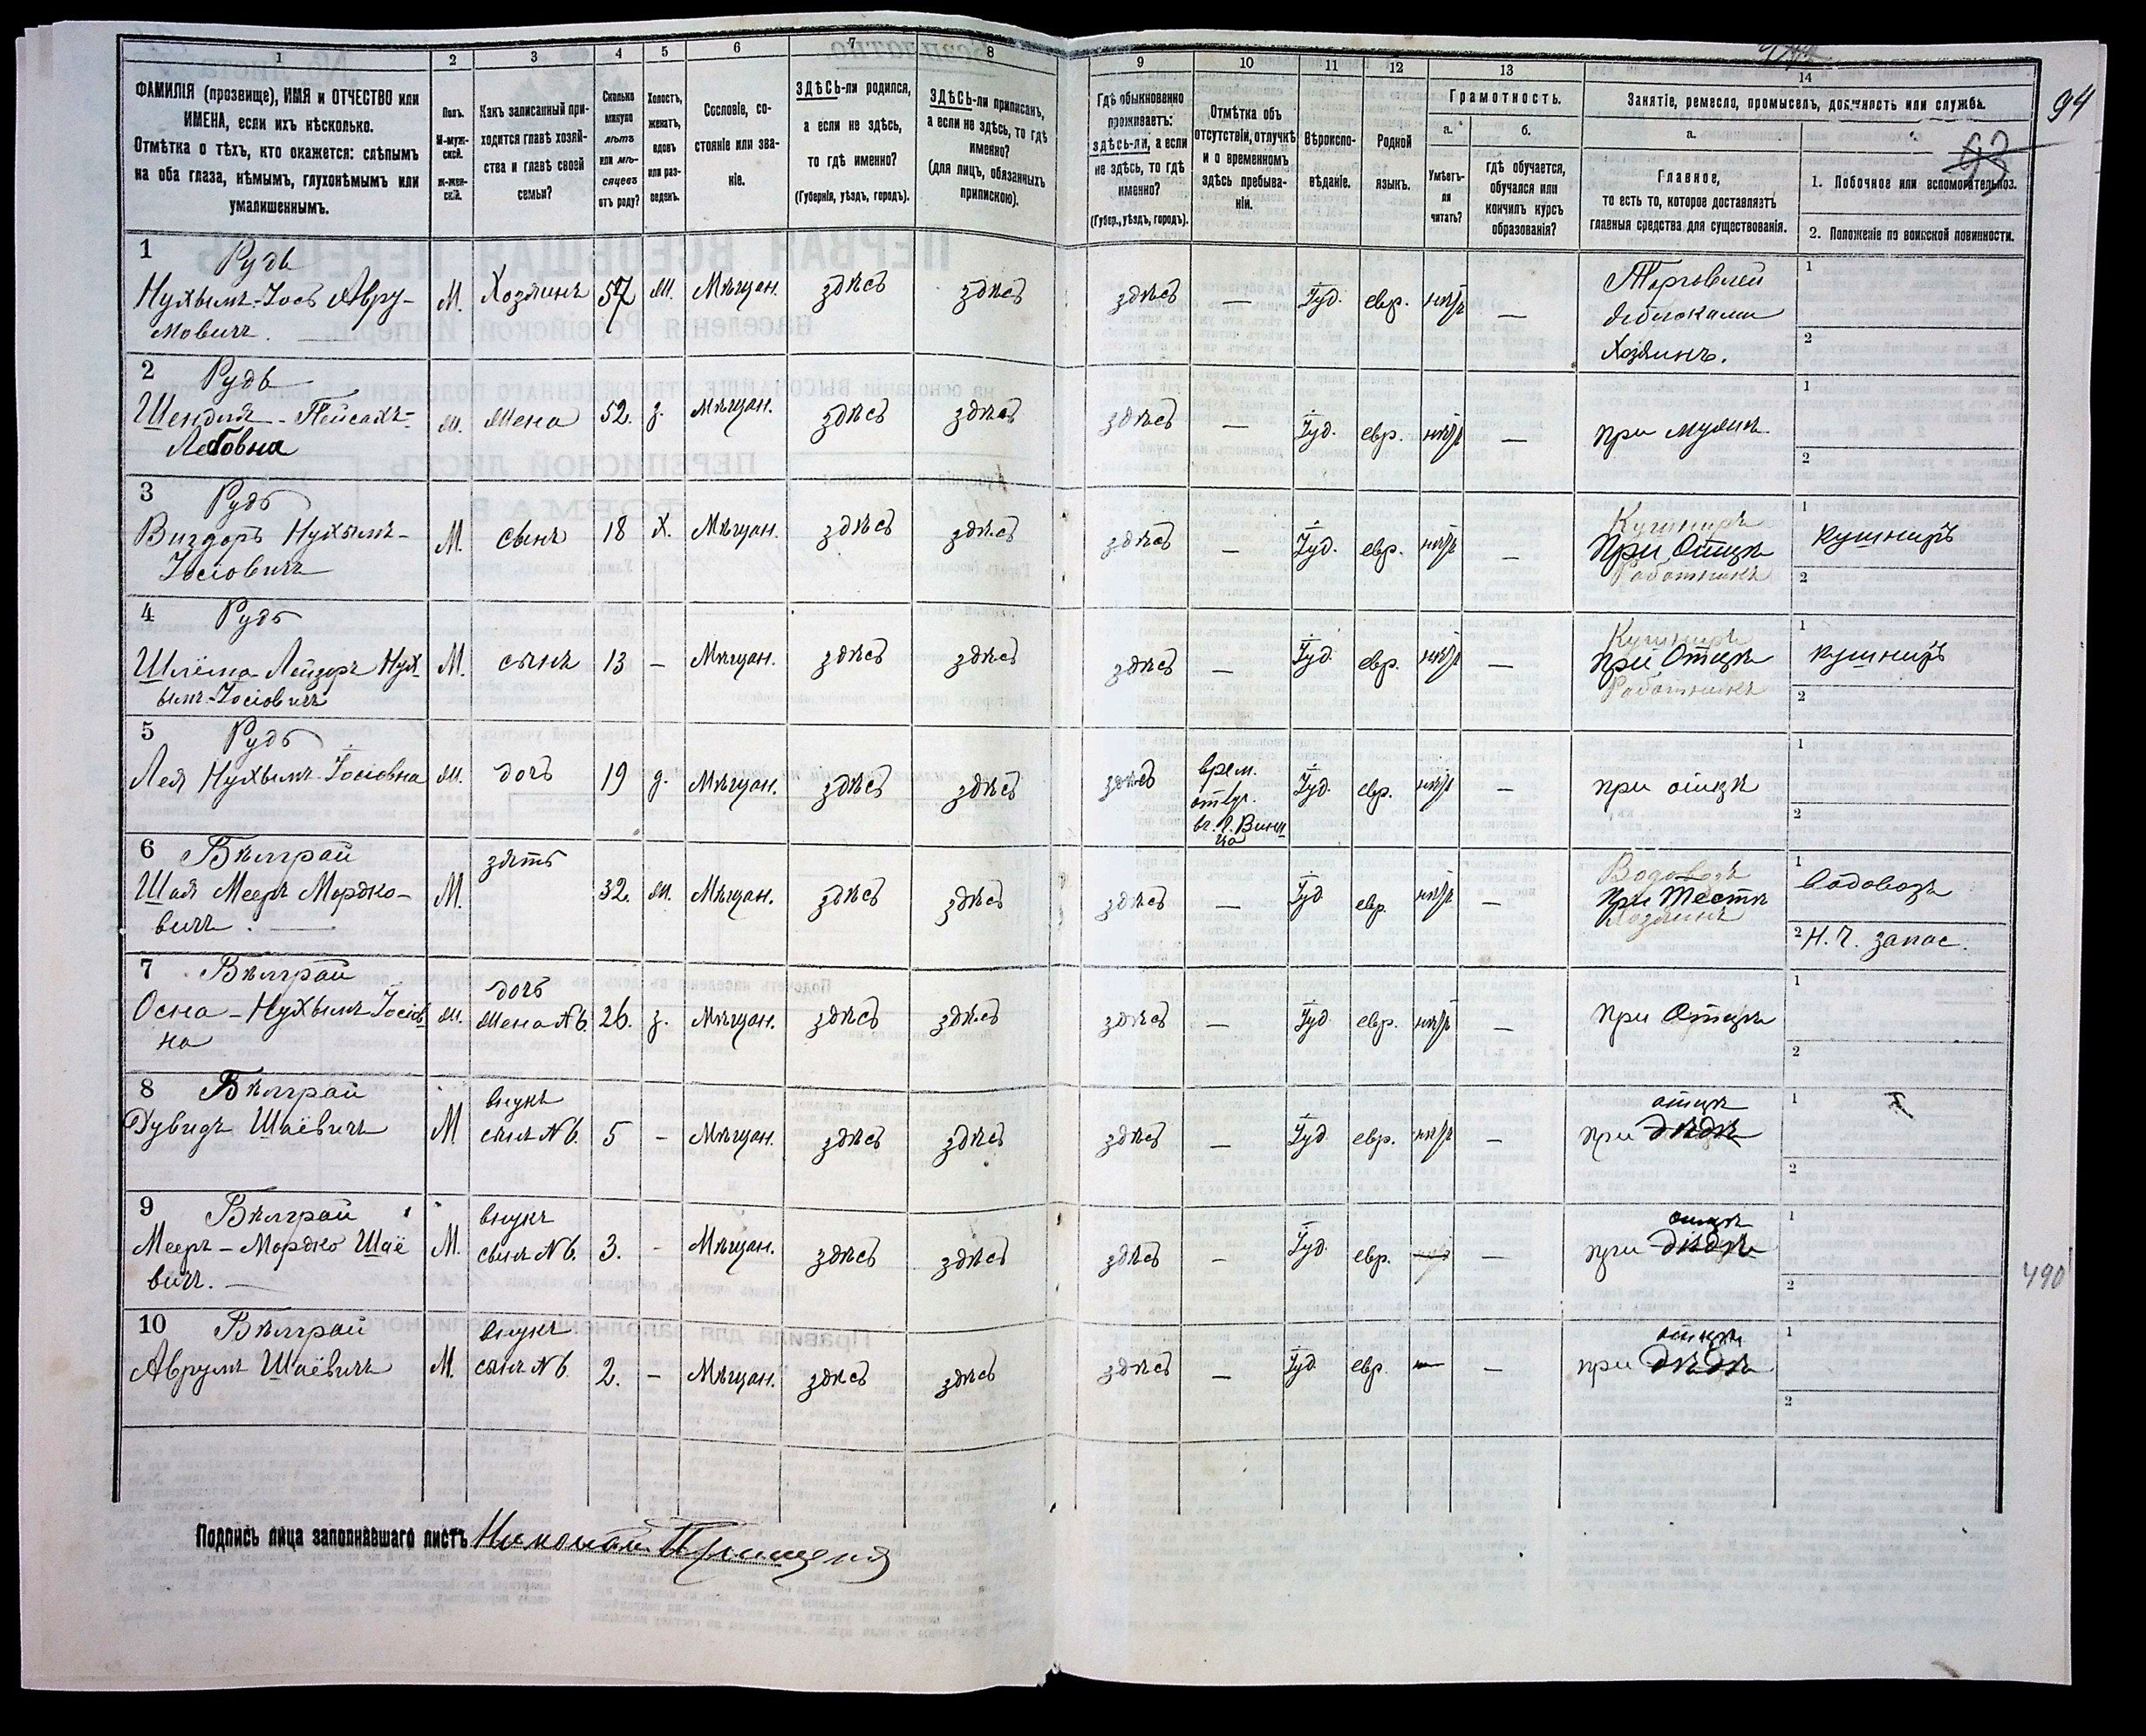 1
2
3
4
5
6
7
8
ФАМИЛІЯ (прозвище), ИМЯ и ОТЧЕСТВО или
ИМЕНА, если ихъ нѣсколько.
Отмѣтка о тѣхъ, кто окажется: слѣпымъ
на оба глаза, нѣмымъ, глухонѣмымъ или
умалишеннымъ.
Полъ.
М-муж-
ской.
Ж-жен-
скій.
Какъ записанный при-
ходится главѣ хозяй-
ства и главѣ своей
семьи?
Сколько
минуло
лѣтъ
или мѣ-
сяцевъ
отъ роду?
Холостъ,
женатъ,
вдовъ
или раз-
веденъ.
Сословіе, со-
стояніе или зва-
ніе.
ЗДѢСЬ-ли родился,
а если не здѣсь,
то гдѣ именно?
(Губернія, уѣздъ, городъ).
ЗДѢСЬ-ли приписанъ,
а если не здѣсь, то гдѣ
именно?
(для лицъ, обязанныхъ
припискою).
9
10
11
12
13
14
Гдѣ обыкновенно
проживаетъ:
здѣсь-ли, а если
не здѣсь, то гдѣ
именно?
(Губер., уѣздъ, городъ).
Отмѣтка объ
отсутствіи, отлучкѣ
и о временномъ
здѣсь пребыва-
ніи.
Вѣроиспо-
вѣданіе.
Родной
языкъ.
Грамотность.
а.
б.
Умѣетъ-
ли
читать?
гдѣ обучается,
обучался или
кончилъ курсъ
образованія?
Занятіе, ремесло, промыселъ, должность или служба.
а.
Главное,
то есть то, которое доставляетъ
главныя средства для существованія.
1. Побочное или вспомогательное.
2. Положеніе по воинской повинности.
94
93
1 Рудь
Нухымъ-Іосъ Авру-
мовичъ.
М. Хозяинъ 57 ж. Мѣщан. здѣсь здѣсь здѣсь — Іуд. евр. нѣтъ —
Торговлей
яблоками
Хозяинъ.
1
2
2 Рудь
Шендля - Пейсахъ-
Лебовна
ж. жена 52. з. Мѣщан. здѣсь здѣсь здѣсь — Іуд. евр. нѣтъ — при мужѣ
1
2
3 Рудь
Виздоръ Нухымъ-
Іосіовичъ
М. сынъ 18 х. Мѣщан. здѣсь здѣсь здѣсь — Іуд. евр. нѣтъ —
Кушниръ
при Отцѣ
Работникъ
1 кушниръ
2
4 Рудь
Шлёма Лейзоръ Нух
ымъ-Іосіовичъ
М. сынъ 13 — Мѣщан. здѣсь здѣсь здѣсь — Іуд. евр. нѣтъ —
Кушниръ
при Отцѣ
Работникъ
1 кушниръ
2
5 Рудь
Лея Нухымъ-Іосіовна ж. дочь 19 д. Мѣщан. здѣсь здѣсь здѣсь
врем.
отлуч.
въ г. Винн
ца
Іуд. евр. нѣтъ — при отцѣ
1
2
6 Бѣлграй
Шая Мееръ Мордко-
вичъ.
М. зять 32. ж. Мѣщан. здѣсь здѣсь здѣсь — Іуд. евр. нѣтъ —
Водовозъ
при Тестѣ
Хозяинъ
1 водовозъ
2 Н. Ч. запас.
7 Бѣлграй
Осна - Нухымъ Іосіов
на
ж.
дочь
жена №6. 26. з. Мѣщан. здѣсь здѣсь здѣсь — Іуд. евр. нѣтъ — при Отцѣ
1
2
8 Бѣлграй
Дувидъ Шаёвичъ М
внукъ
сынъ №6. 5 — Мѣщан. здѣсь здѣсь здѣсь — Іуд. евр. нѣтъ —
отцѣ
при дѣдѣ
1
2
9 Бѣлграй
Мееръ - Мордко Шаё
вичъ.
М.
внукъ
сынъ №6. 3. - Мѣщан. здѣсь здѣсь здѣсь — Іуд. евр. —
отцѣ
при дѣдѣ
1
2
490
10 Бѣлграй
Аврумъ Шаёвичъ М.
внукъ
сынъ №6. 2. — Мѣщан. здѣсь здѣсь здѣсь — Іуд. евр. — —
отцѣ
при дѣдѣ
1
2
Подпись лица заполнявшаго листъ